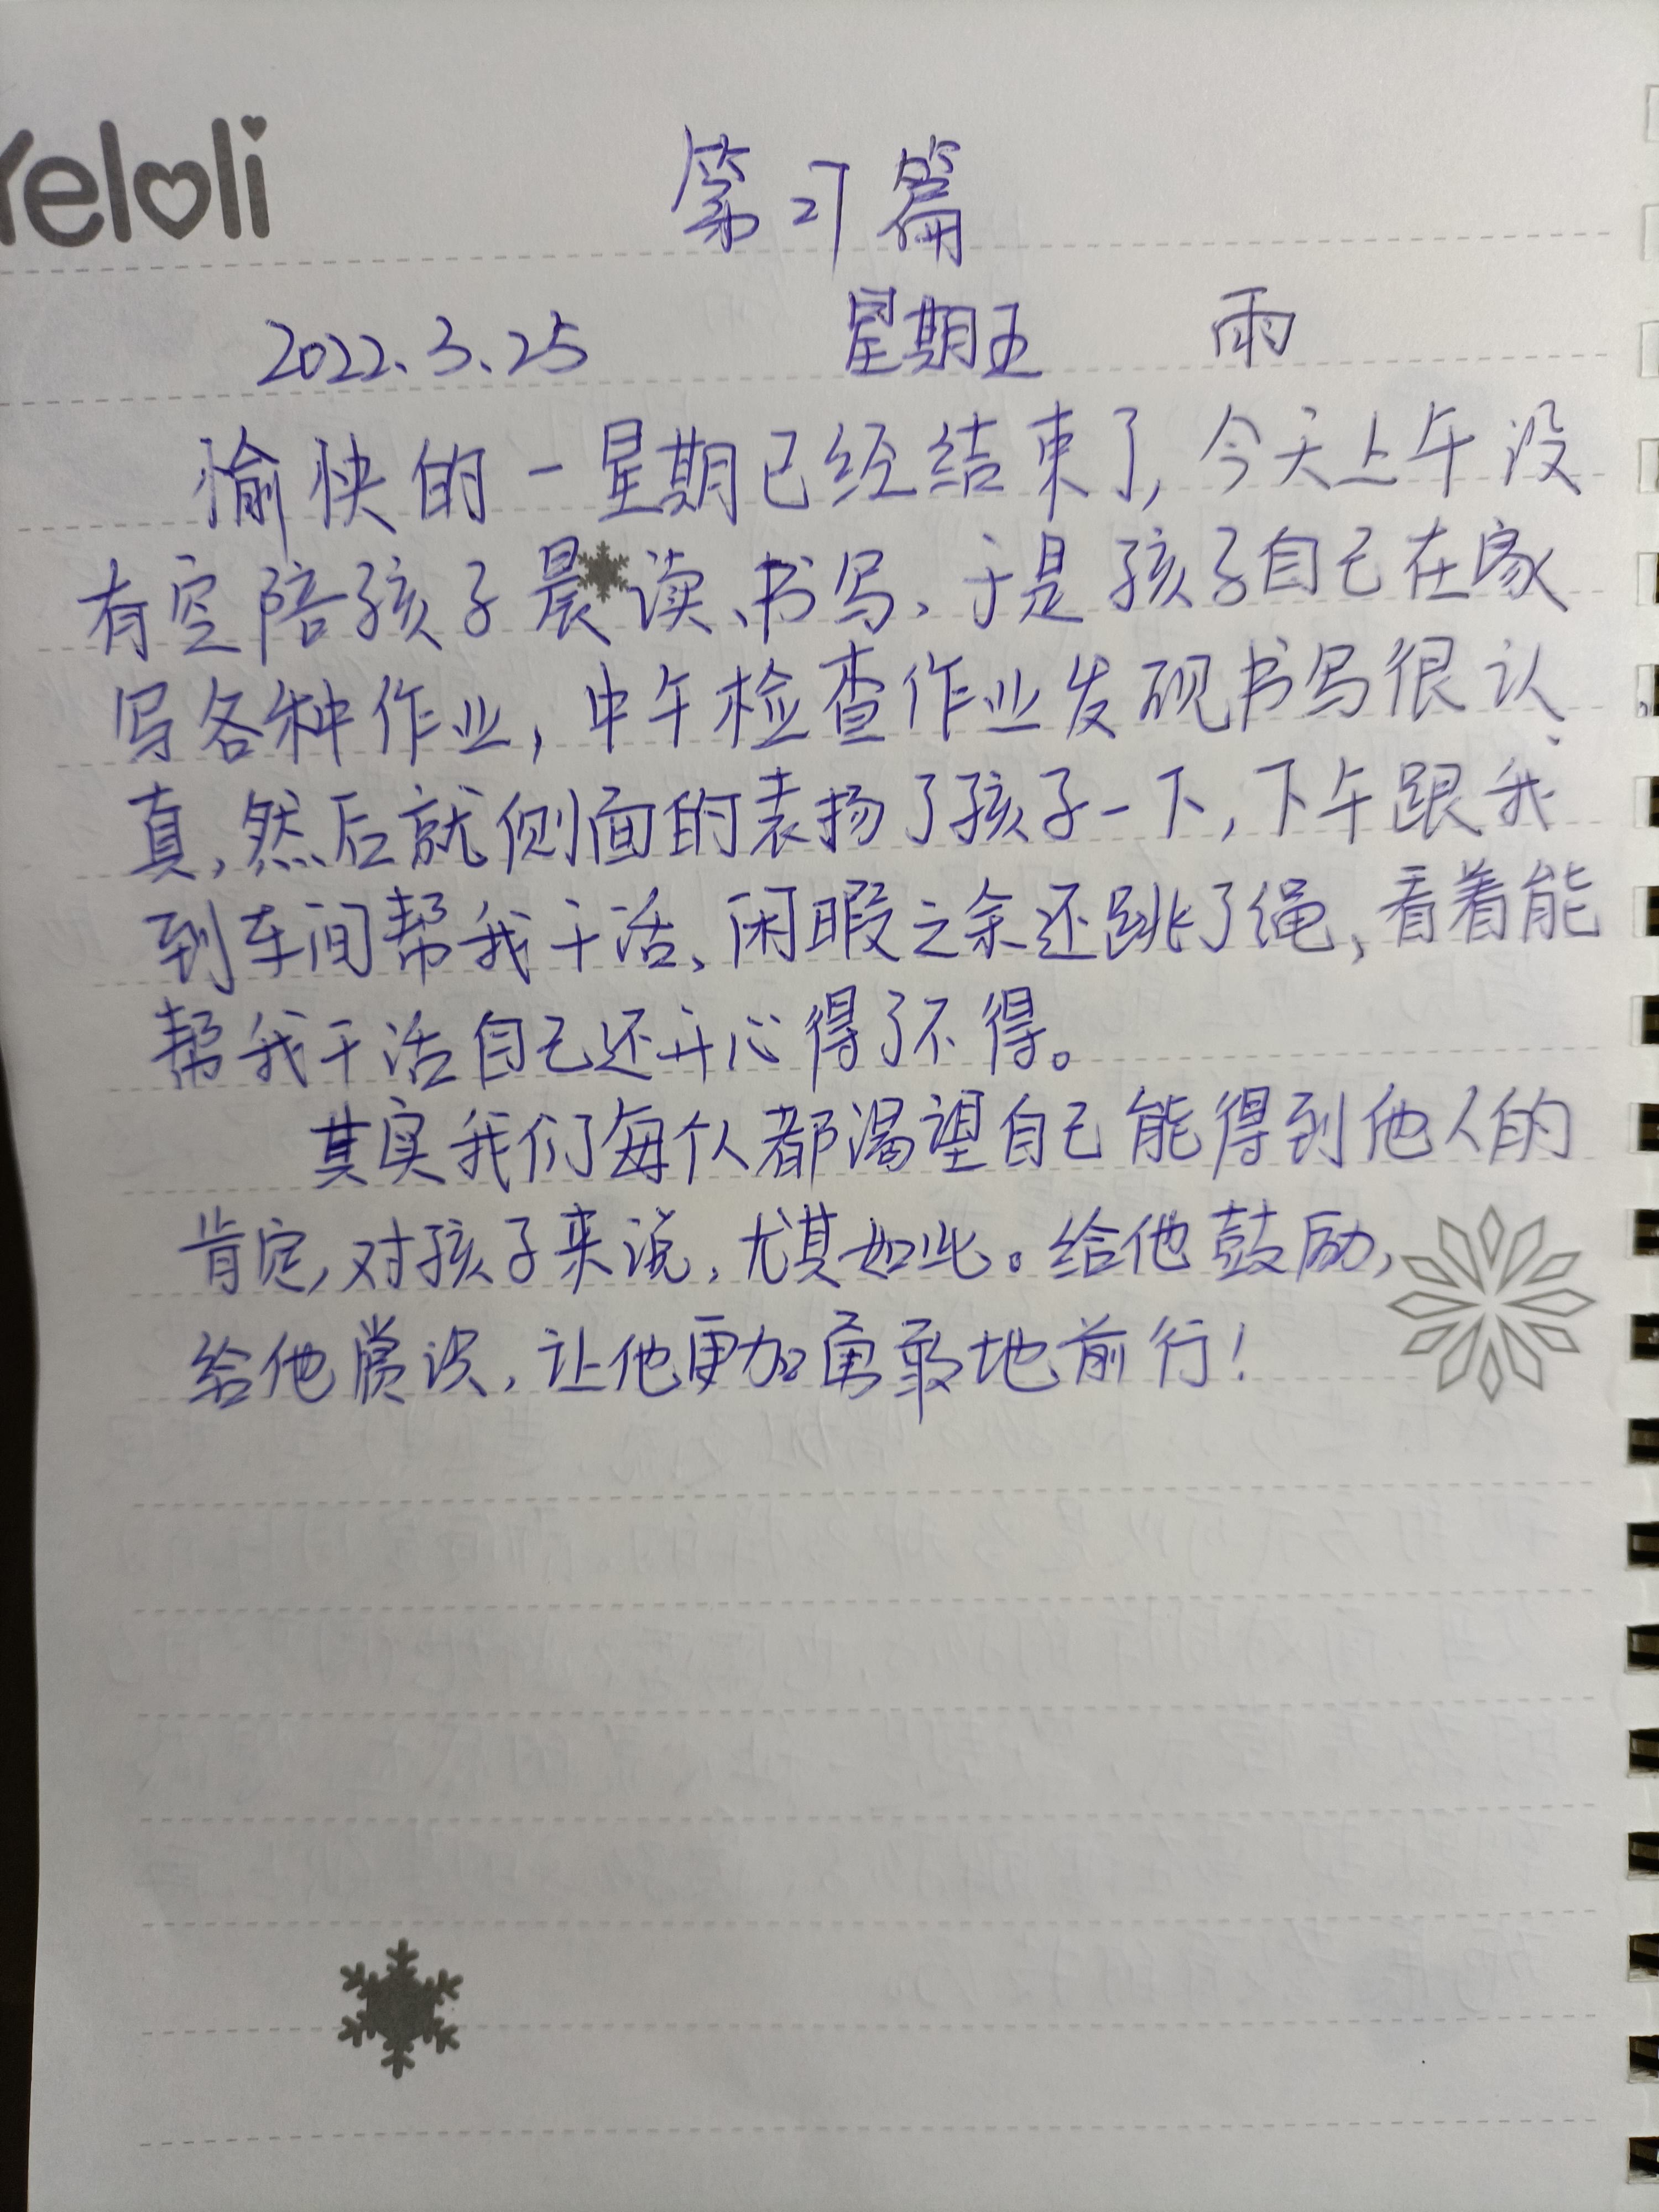 Yeloli
第27篇
2022.3.25 星期五 雨
愉快的一星期已经结束了,今天上午没
有空陪孩子晨读、书写,于是孩子自己在家
写各种作业,中午检查作业发现书写很认
真,然后就侧面的表扬了孩子一下,下午跟我
到车间帮我干活,闲暇之余还跳了绳,看着能
帮我干活自己还开心得了不得。
其实我们每个人都渴望自己能得到他人的
肯定,对孩子来说,尤其如此。给他鼓励,
给他赏识,让他更加勇敢地前行!